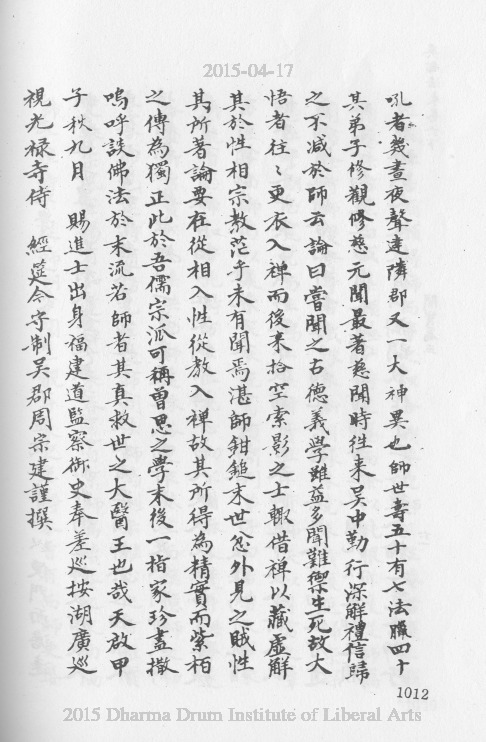 2015-04-17
吼者幾晝夜聲達隣郡又一大神異也師世壽五十有七法臘四十
其弟子修觀修慈元聞最著慈聞時徃来吴中勤行深解禮信歸
之不减於師云論曰嘗聞之古德義學雖益多聞難禦生死故大
悟者往〻更衣入禅而後来拾空索影之士輙借禅以藏虚解
其於性相宗教茫乎未有聞焉湛師鉗鎚末世忿外見之賊性
其所著論要在從相入性從教入禅故其所得為精實而紫栢
之傳為獨正此於吾儒宗派可稱曾思之學末後一指家珍盡撒
嗚呼談佛法於末流若師者其真救世之大醫王也哉天啟甲
子秋九月 賜進士出身福建道監察御史奉差巡按湖廣巡
視光禄寺侍 經筵令守制吴郡周宗建謹撰
1012
2015 Dharma Drum Institute of Liberal Arts